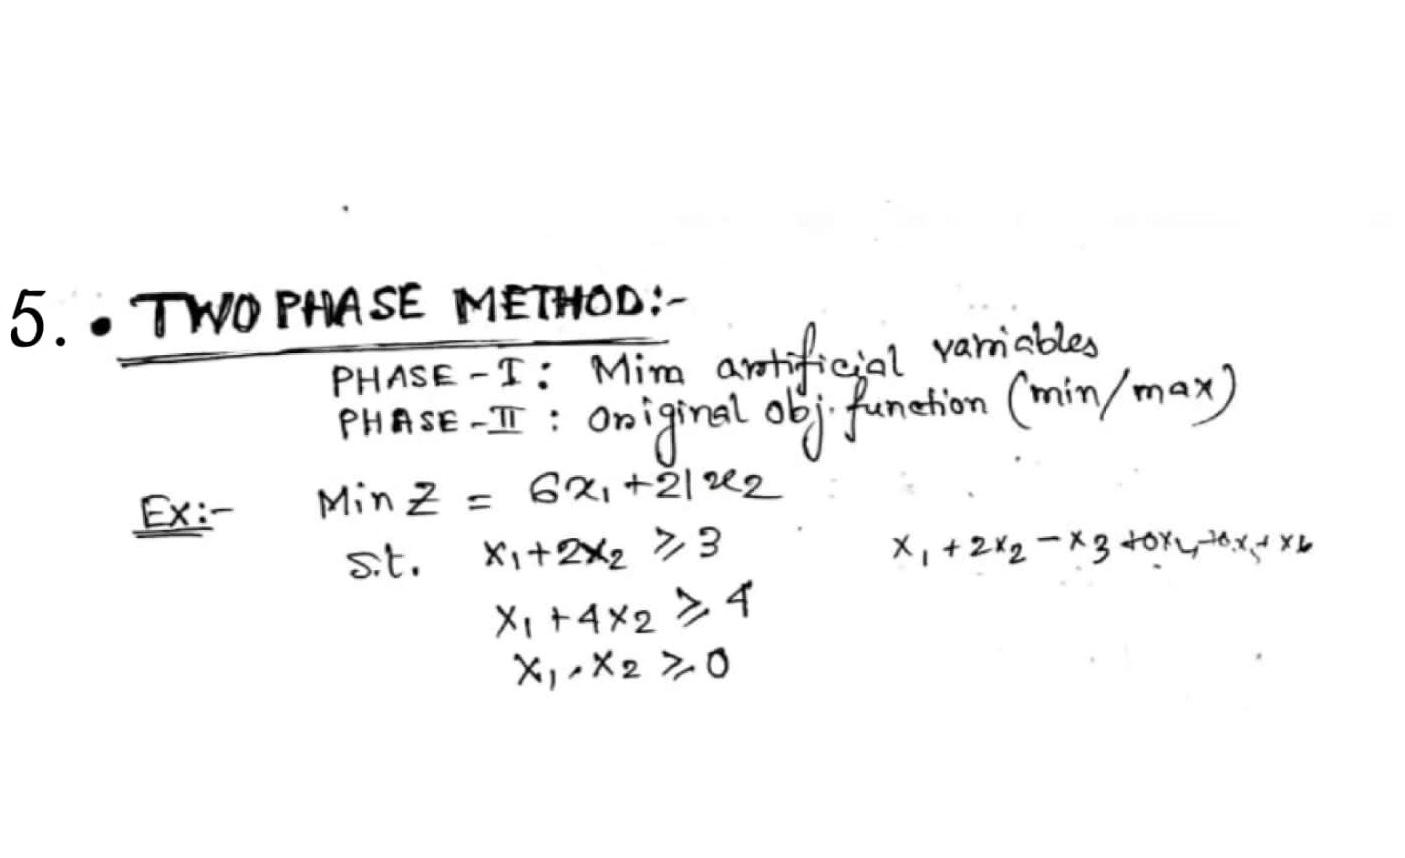 5. • TWO PHASE METHOD:-
PHASE - I : Mim artificial variables
PHASE - II : Original obj. function (min/max)
Ex:- Min Z = 6x₁ + 21x₂
s.t. x₁ + 2x₂ ≥ 3 x₁ + 2x₂ - x₃ + 0x₄ + 0.x₅ + x₆
x₁ + 4x₂ ≥ 4
x₁, x₂ ≥ 0